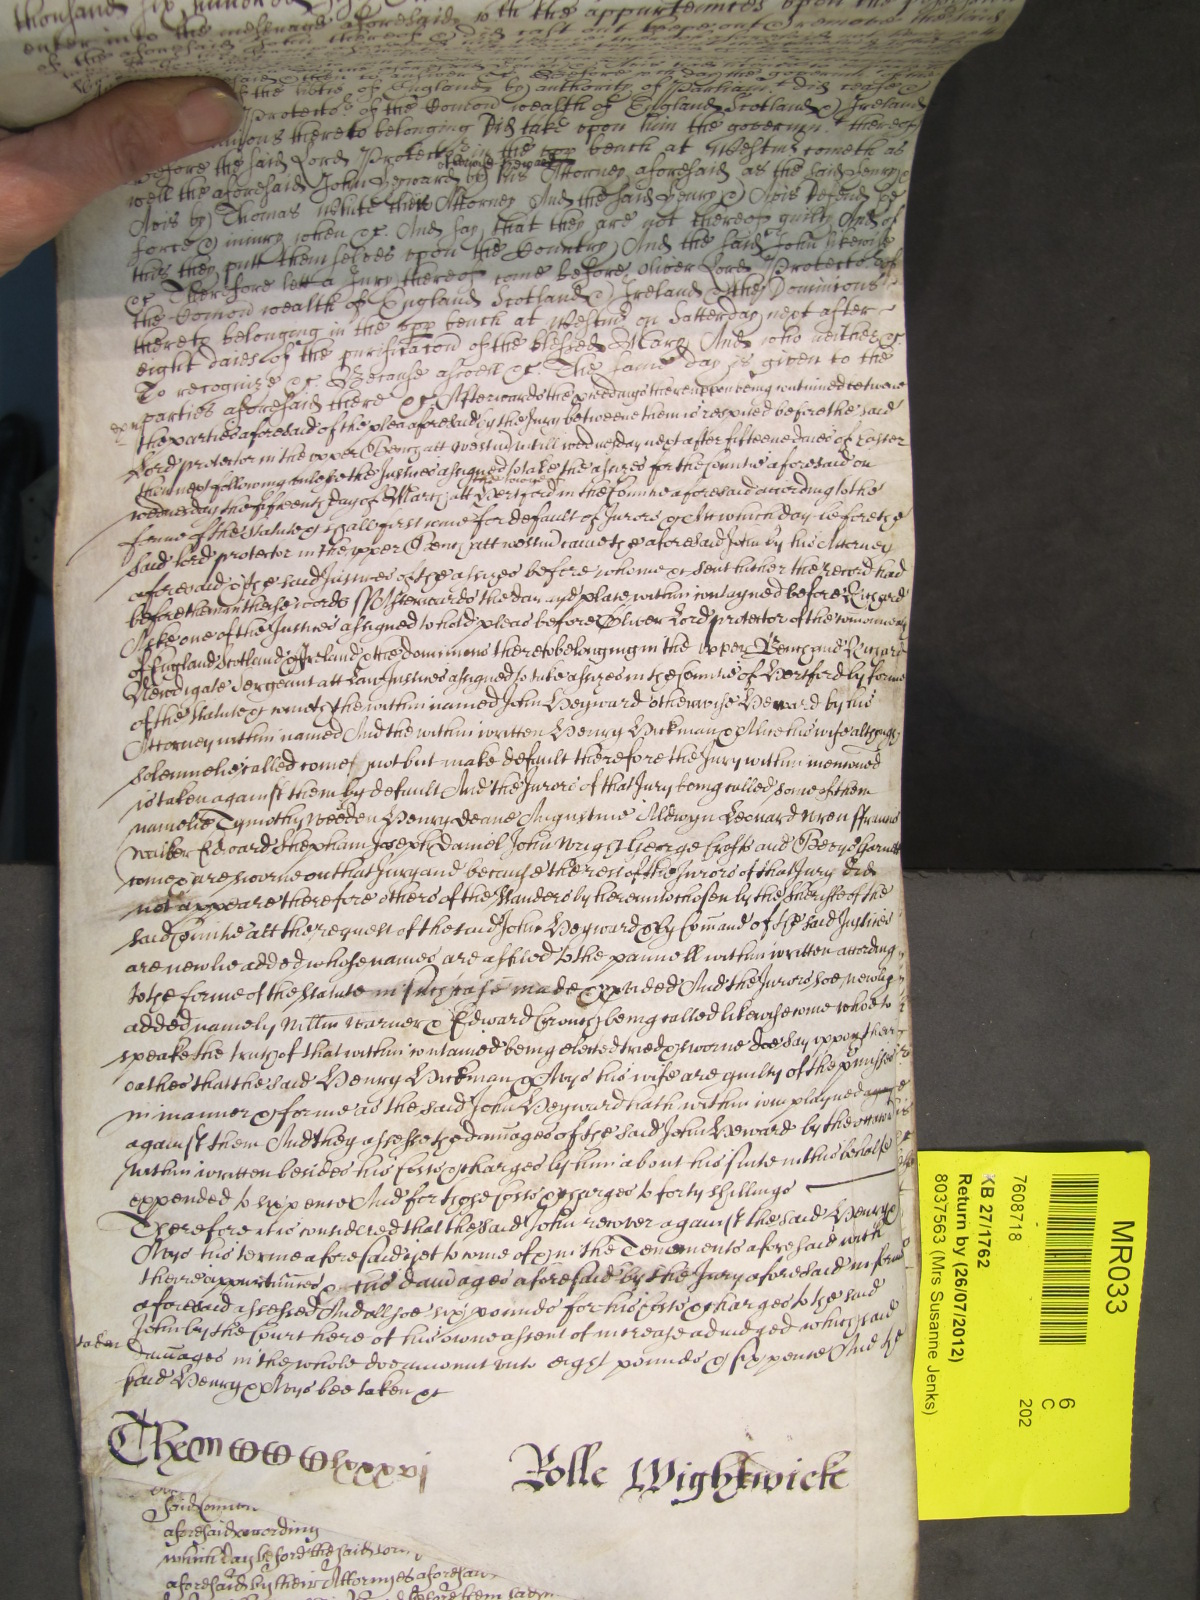 thousand six hundred
enter into the messuage aforesaid with the appurtenances upon the possession
of the aforesaid John thereof & did cast out expell & remove the said
of the libtie of England by authority of Parliamt did cease &
Protector of the Comon wealth of England Scotland & Ireland
thereto belonging did take upon him the governmt thereof
before the said Lord Protector in the upp bench at Westmr cometh as
well the aforesaid John Heyward otherwise Heward by his Attorney aforesaid as the said Henry &
Avis by Thomas White their Attorney And the said Henry & Avis defend ye
force & iniury when &c. And say that they are not thereof guilty And of
this they putt themselves upon the Country And the said John likewise
&c Therefore lett a Jury thereof come before Oliver Lord Protector of
the Comon wealth of England Scotland & Ireland & the Dominions
thereto belonging in the upp bench at Westmr on Satterday next after
eight daies of the purificacon of the blessed Mary And who neither &c.
To recognize &c. Because aswell &c. The same day is given to the
parties aforesaid there &c Afterwards the proces thereupon being continued betweene
the parties aforesaid of the plea aforesaid by the Jury betweene them is respited before the said
Lord protector in the upper Bench att Westmr untill wednesday next after fifteene daies of Easter
then next following unlesse the Justices assigned to take the assizes for the Countie aforesaid on
wednesday the fifteenth day of March att the towne of Hertford in the Countie aforesaid according to the
forme of the Statute &c shall first come for default of Jurors &c Att which day before the
said lord protector in the upper Bench att westmr came the aforesaid John by his Attorney
aforesaid & the said Justices of the assizes before whome &c sent hither the Record had
before them in these words ss Afterwards the day and place within contayned before Richard
Aske one of the Justices assigned to hold pleas before Oliver Lord protector of the comonwea
of England Scotland & Ireland & the dominions thereto belonging in the upper Bench and Richard
Newdigate Sergeant att Law Justices assigned to take assizes in the Countie of Hertford by forme
of the Statute &c cometh the within named John Heyward otherwise Heward by his
Attorney within named And the within written Henry Hickman & Avice his wife although
solemnelie called come not but make default therefore the Jury within mencond
is taken against them by default And the Jurors of that Jury being called some of them
namelie Tymothy Weeden Henry Deane Augustine Aldwyn Leonard Wren ffrancis
Walker Edward Chepham Joseph Daniel John Wright George Crofts and Garnet
come & are sworne on that Jury and because the rest of the Jurors of that Jury did
not appeare therefore others of the Standers by hereunto chosen by the Sheriffe of the
said Countie att the request of the said John Heyward & by Comand of the said Justices
are newlie added whose names are affiled to the pannell within written according
to the forme of the Statute in such case made & provided And the Jurors soe newly
added namely Willm Warner & Edward Crouch being called likewise come who to
speake the truth of that within contained being elected tried & sworne doe say uppon their
oathes that the said Henry Hickman & Avys his wife are guilty of the premisses
in manner & forme as the said John Heyward hath within complayned
against them And they assesse the damages of the said John Heward by the
within written besides his costs & charges by him about his suite in this behalfe
expended to sixpence And for those costs & charges to forty shillings
Therefore it is considered that the said John recover against the said Henry &
Avys his terme aforesaid yet to come of & in the Tenements aforesaid with
there appurtinncs & his damages aforesaid by the Jury aforesaid in forme
aforesaid assessed And allsoe six pounds for his costs & charges to the said
John by the Court here of his owne assent of increase adiudged which said
taken
damages in the whole doe amount unto eight pounds & sixpence And the
said Henry & Avys bee taken &c
Rolle Wightwick
said Comon
aforesaid according
which day before the said
aforesaid by their Attorneyes aforesaid
MR033
7608718
6
C
202
KB 27/1762
Return by (26/07/2012)
8037563 (Mrs Susanne Jenks)